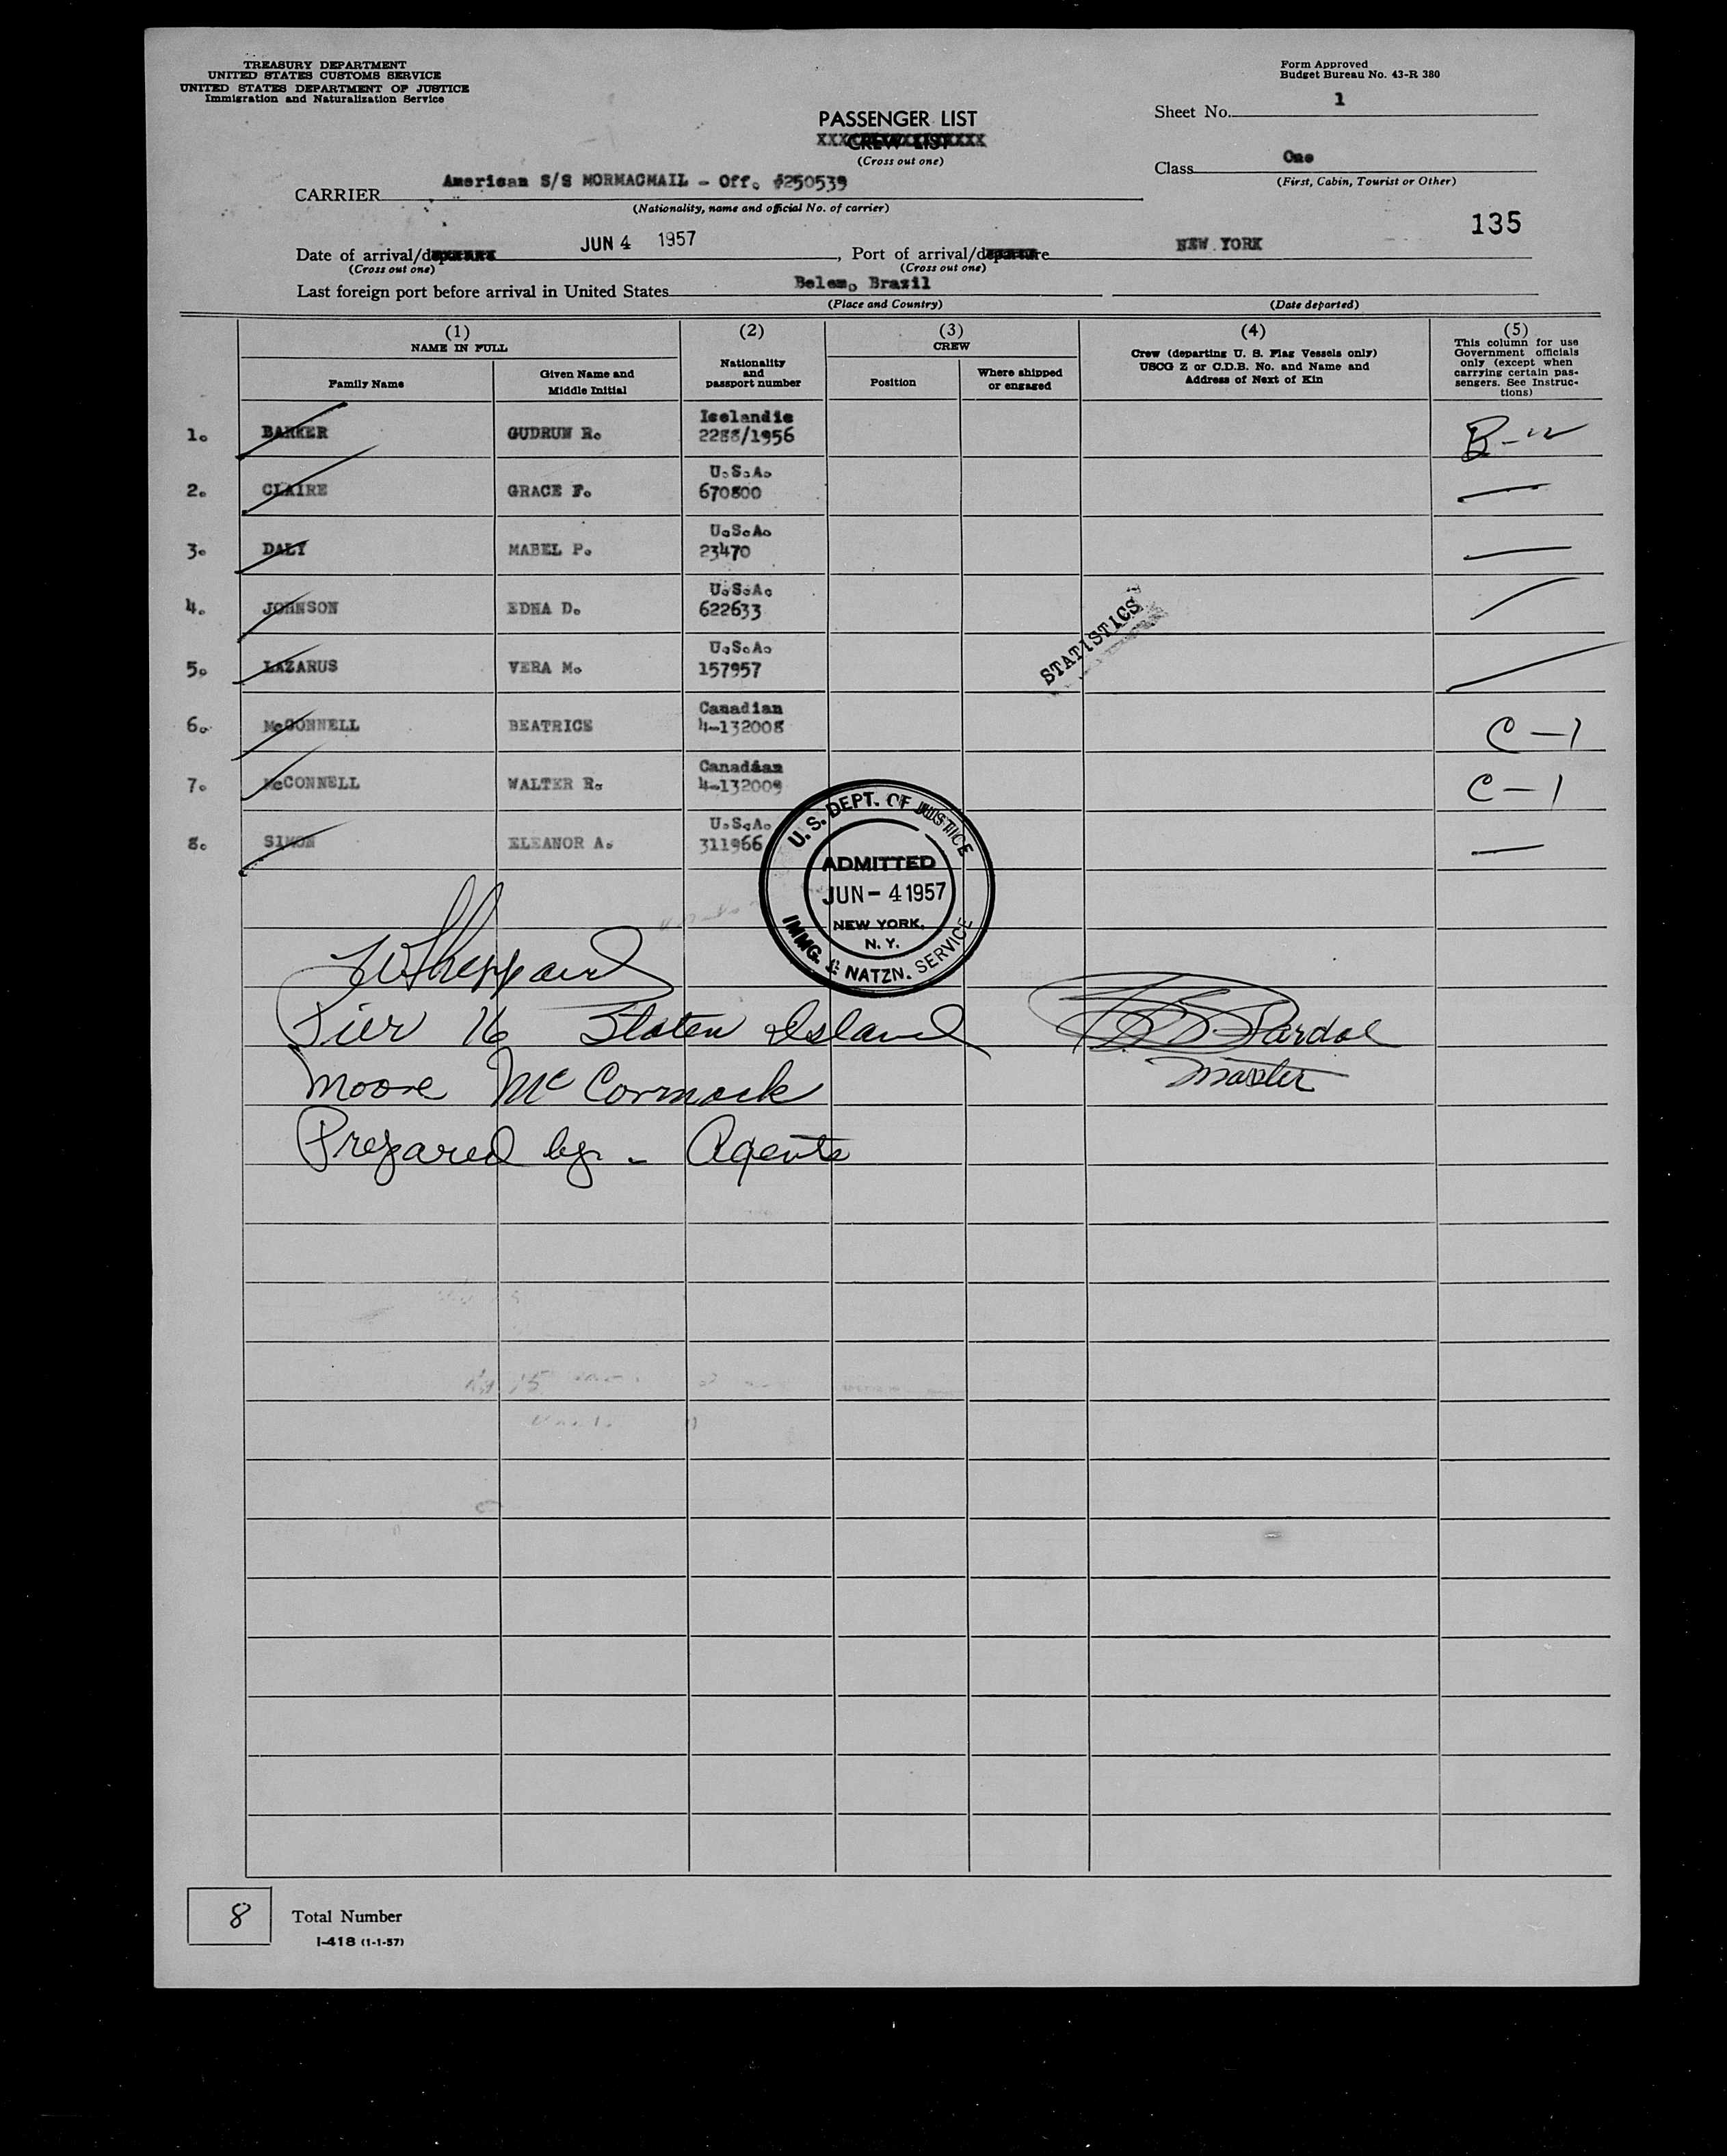 TREASURY DEPARTMENT
UNITED STATES CUSTOMS SERVICE
UNITED STATES DEPARTMENT OF JUSTICE
Immigration and Naturalization Service
Form Approved
Budget Bureau No. 43-R 380
PASSENGER LIST
CREW LIST
(Cross out one)
Sheet No. 1
Class One
(First, Cabin, Tourist or Other)
CARRIER American S/S MORMACMAIL - Off. #250539
(Nationality, name and official No. of carrier)
135
Date of arrival/departure JUN 4 1957, Port of arrival/departure NEW YORK
(Cross out one) (Cross out one)
Last foreign port before arrival in United States Belem, Brazil
(Place and Country) (Date departed)
(1) (2) (3) (4) (5)
NAME IN FULL
Family Name
Given Name and
Middle Initial
Nationality
and
passport number
CREW
Position
Where shipped
or engaged
Crew (departing U. S. Flag Vessels only)
USCG Z or C.D.B. No. and Name and
Address of Next of Kin
This column for use
Government officials
only (except when
carrying certain pas-
sengers. See Instruc-
tions)
Icelandic
1. BARKER GUDRUN R. 2288/1956 B-2
U.S.A.
2. CLAIRE GRACE F. 670800
U.S.A.
3. DALY MABEL P. 23470
U.S.A.
4. JOHNSON EDNA D. 622633
STATISTICS
U.S.A.
5. LAZARUS VERA M. 157957
Canadian
6. McCONNELL BEATRICE 4-132008 C-1
Canadian
7. McCONNELL WALTER R. 4-132009 C-1
U.S.A.
8. SIMON ELEANOR A. 311966
U.S. DEPT. OF JUSTICE
ADMITTED
JUN - 4 1957
NEW YORK,
N. Y.
IMMG. & NATZN. SERVICE
Sheppard
Pier 16 Staten Island
Master
Moore McCormack
Prepared by - Agents
8 Total Number
I-418 (1-1-57)